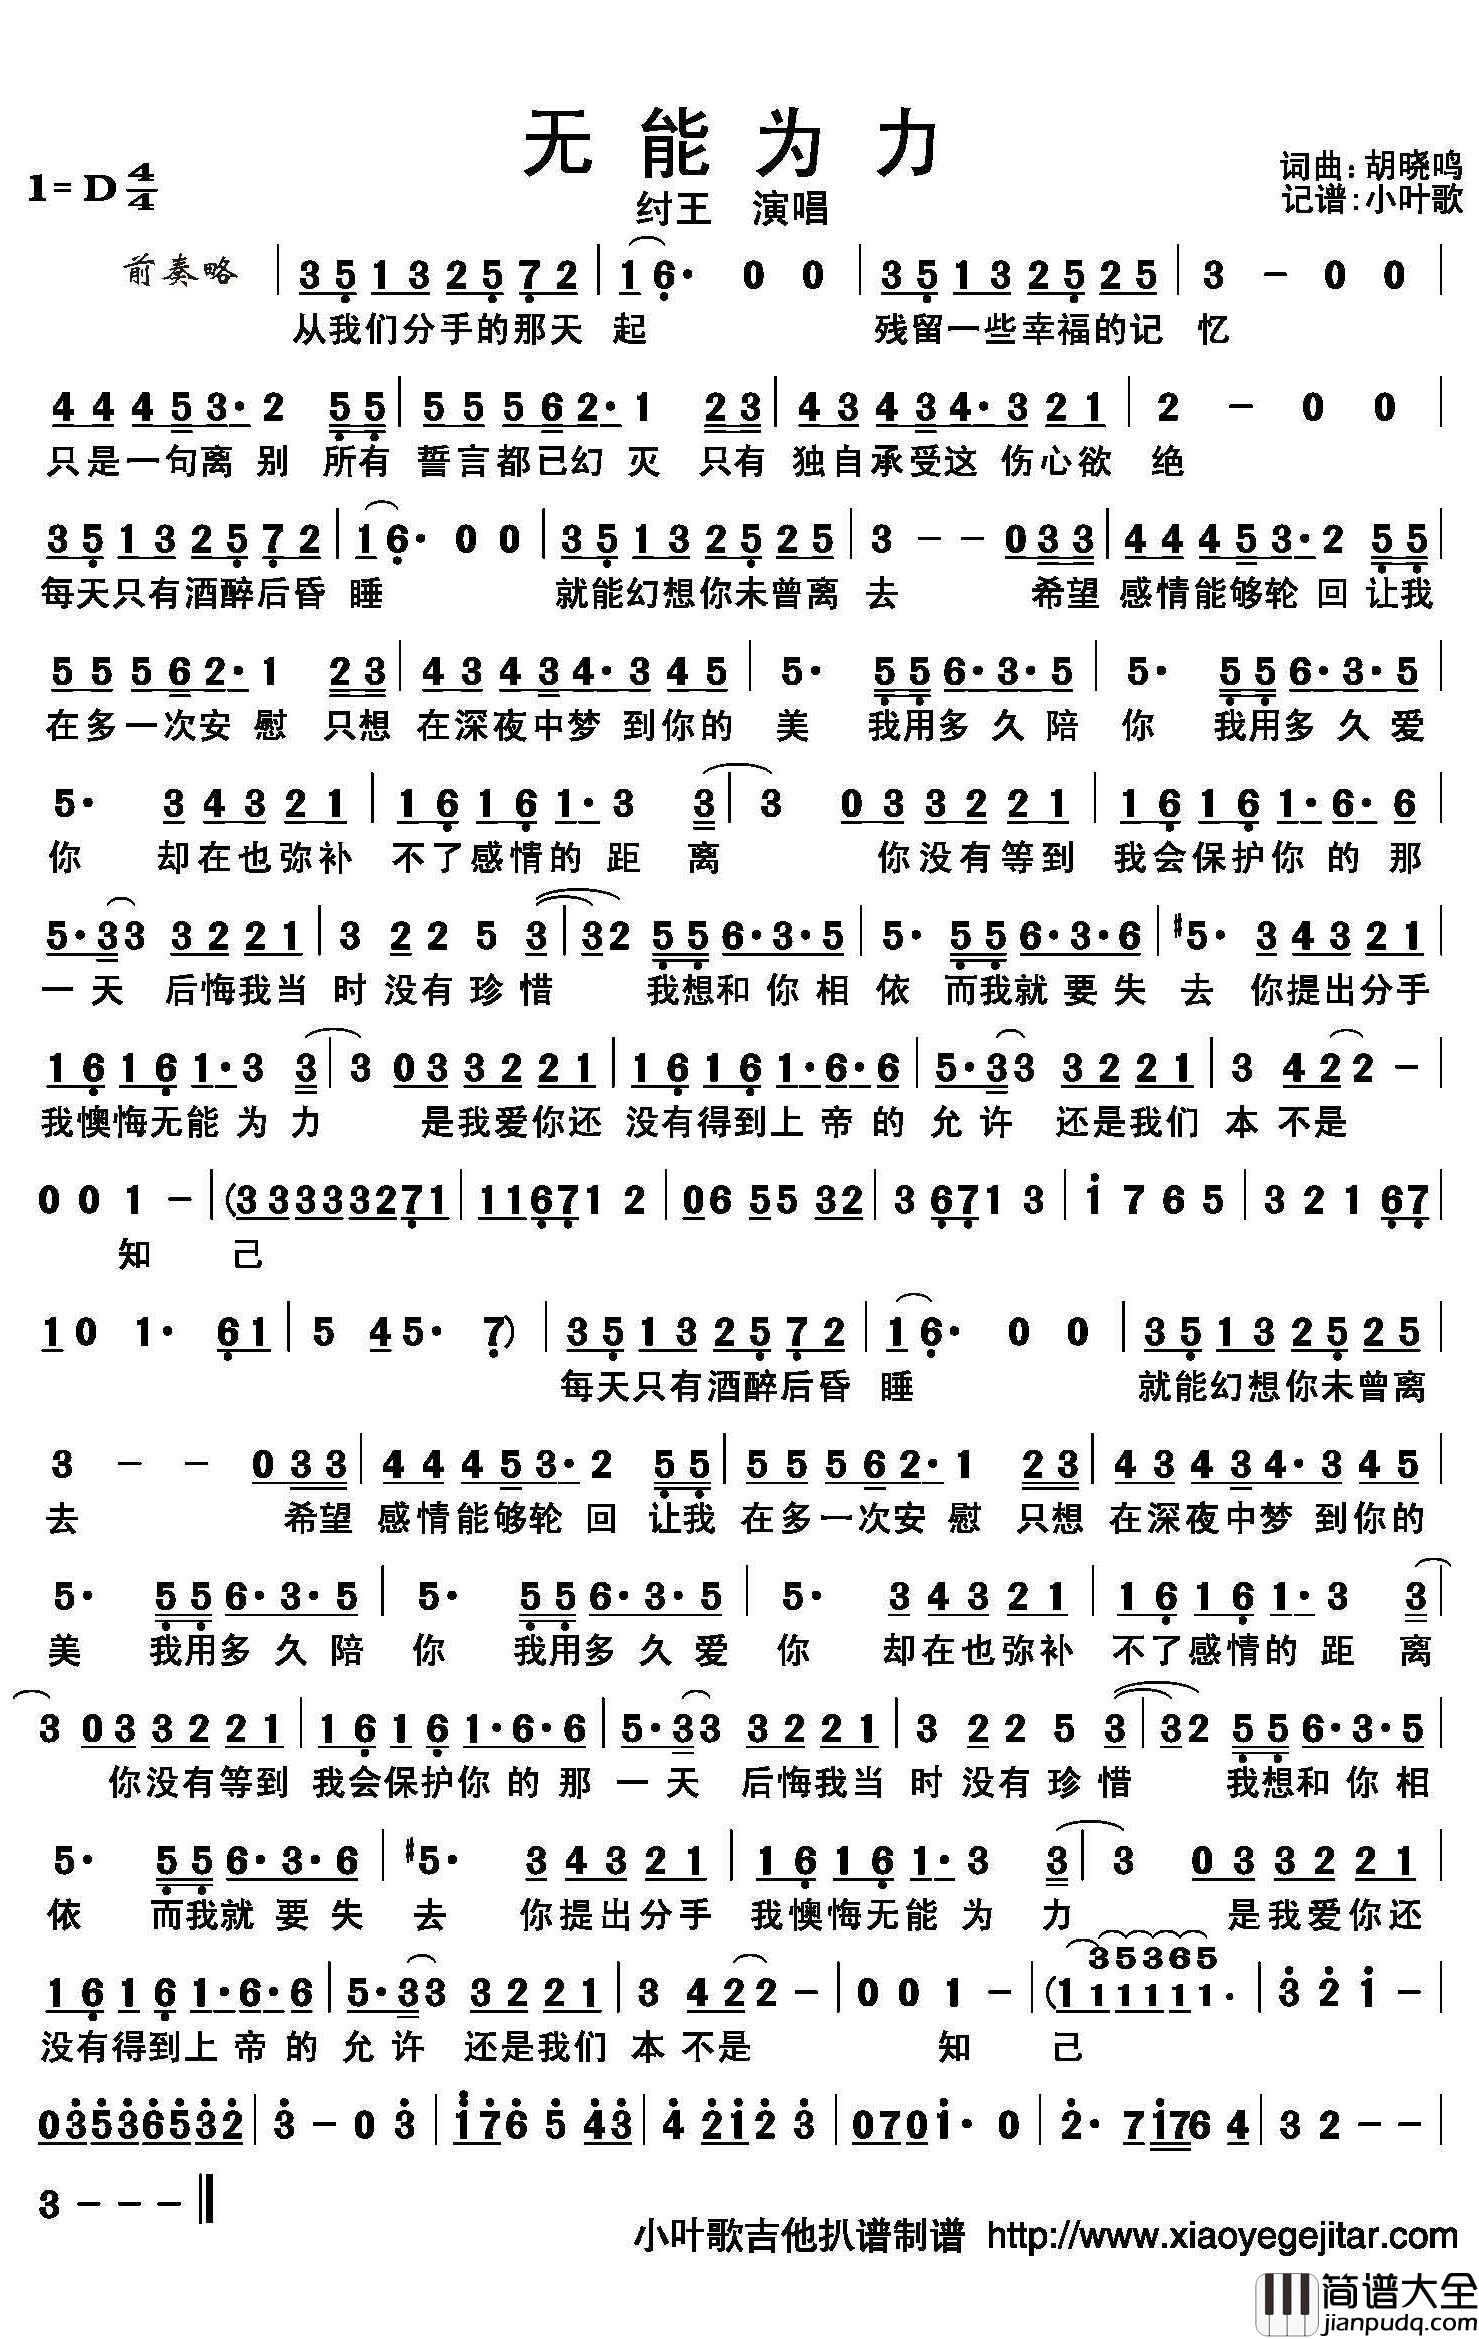 无能为力
1=D 4/4
纣王 演唱
词曲:胡晓鸣
记谱:小叶歌
前奏略 | 3 5 1 3 2 5 7 2 | 1 6· 0 0 | 3 5 1 3 2 5 2 5 | 3 － 0 0 |
从我们分手的那天 起 残留一些幸福的记 忆
4 4 4 5 3· 2 5 5 | 5 5 5 6 2· 1 2 3 | 4 3 4 3 4· 3 2 1 | 2 － 0 0 |
只是一句离 别 所有 誓言都已幻 灭 只有 独自承受这 伤心欲 绝
3 5 1 3 2 5 7 2 | 1 6· 0 0 | 3 5 1 3 2 5 2 5 | 3 － － 0 3 3 | 4 4 4 5 3· 2 5 5 |
每天只有酒醉后昏 睡 就能幻想你未曾离 去 希望 感情能够轮 回 让我
5 5 5 6 2· 1 2 3 | 4 3 4 3 4· 3 4 5 | 5· 5 5 6· 3· 5 | 5· 5 5 6· 3· 5 |
在多一次安 慰 只想 在深夜中梦 到你的 美 我用多 久陪 你 我用多 久爱
5· 3 4 3 2 1 | 1 6 1 6 1· 3 3 | 3 0 3 3 2 2 1 | 1 6 1 6 1· 6· 6 |
你 却在也弥补 不了感情的 距 离 你没有等到 我会保护你 的 那
5· 3 3 3 2 2 1 | 3 2 2 5 3 | 3 2 5 5 6· 3· 5 | 5· 5 5 6· 3· 6 | #5· 3 4 3 2 1 |
一 天 后悔我当 时没有珍 惜 我想和 你 相 依 而我就 要 失 去 你提出分手
1 6 1 6 1· 3 3 | 3 0 3 3 2 2 1 | 1 6 1 6 1· 6· 6 | 5· 3 3 3 2 2 1 | 3 4 2 2 － |
我懊悔无能 为 力 是我爱你还 没有得到上 帝 的 允 许 还是我们 本 不 是
0 0 1 － | (3 3 3 3 3 2 7 1 | 1 1 6 7 1 2 | 0 6 5 5 3 2 | 3 6 7 1 3 | 1 7 6 5 | 3 2 1 6 7 |
知 己
1 0 1· 6 1 | 5 4 5· 7) | 3 5 1 3 2 5 7 2 | 1 6· 0 0 | 3 5 1 3 2 5 2 5 |
每天只有酒醉后昏 睡 就能幻想你未曾离
3 － － 0 3 3 | 4 4 4 5 3· 2 5 5 | 5 5 5 6 2· 1 2 3 | 4 3 4 3 4· 3 4 5 |
去 希望 感情能够轮 回 让我 在多一次安 慰 只想 在深夜中梦 到你的
5· 5 5 6· 3· 5 | 5· 5 5 6· 3· 5 | 5· 3 4 3 2 1 | 1 6 1 6 1· 3 3 |
美 我用多 久陪 你 我用多 久爱 你 却在也弥补 不了感情的 距 离
3 0 3 3 2 2 1 | 1 6 1 6 1· 6· 6 | 5· 3 3 3 2 2 1 | 3 2 2 5 3 | 3 2 5 5 6· 3· 5 |
你没有等到 我会保护你 的 那 一 天 后悔我当 时没有珍 惜 我想和 你 相
5· 5 5 6· 3· 6 | #5· 3 4 3 2 1 | 1 6 1 6 1· 3 3 | 3 0 3 3 2 2 1 |
依 而我就 要 失 去 你提出分手 我懊悔无能 为 力 是我爱你还
3 5 3 6 5
1 6 1 6 1· 6· 6 | 5· 3 3 3 2 2 1 | 3 4 2 2 － | 0 0 1 － | (1 1 1 1 1 1· | 3 2 1 － |
没有得到上 帝 的 允 许 还是我们 本 不 是 知 己
0 3 5 3 6 5 3 2 | 3 － 0 3 | 1 7 6 5 4 3 | 4 2 1 2 3 | 0 7 0 1· 0 | 2· 7 1 7 6 4 | 3 2 － － |
3 － － － ‖
小叶歌吉他扒谱制谱 http://www.xiaoyegejitar.com
简谱大全
jianpudq.com